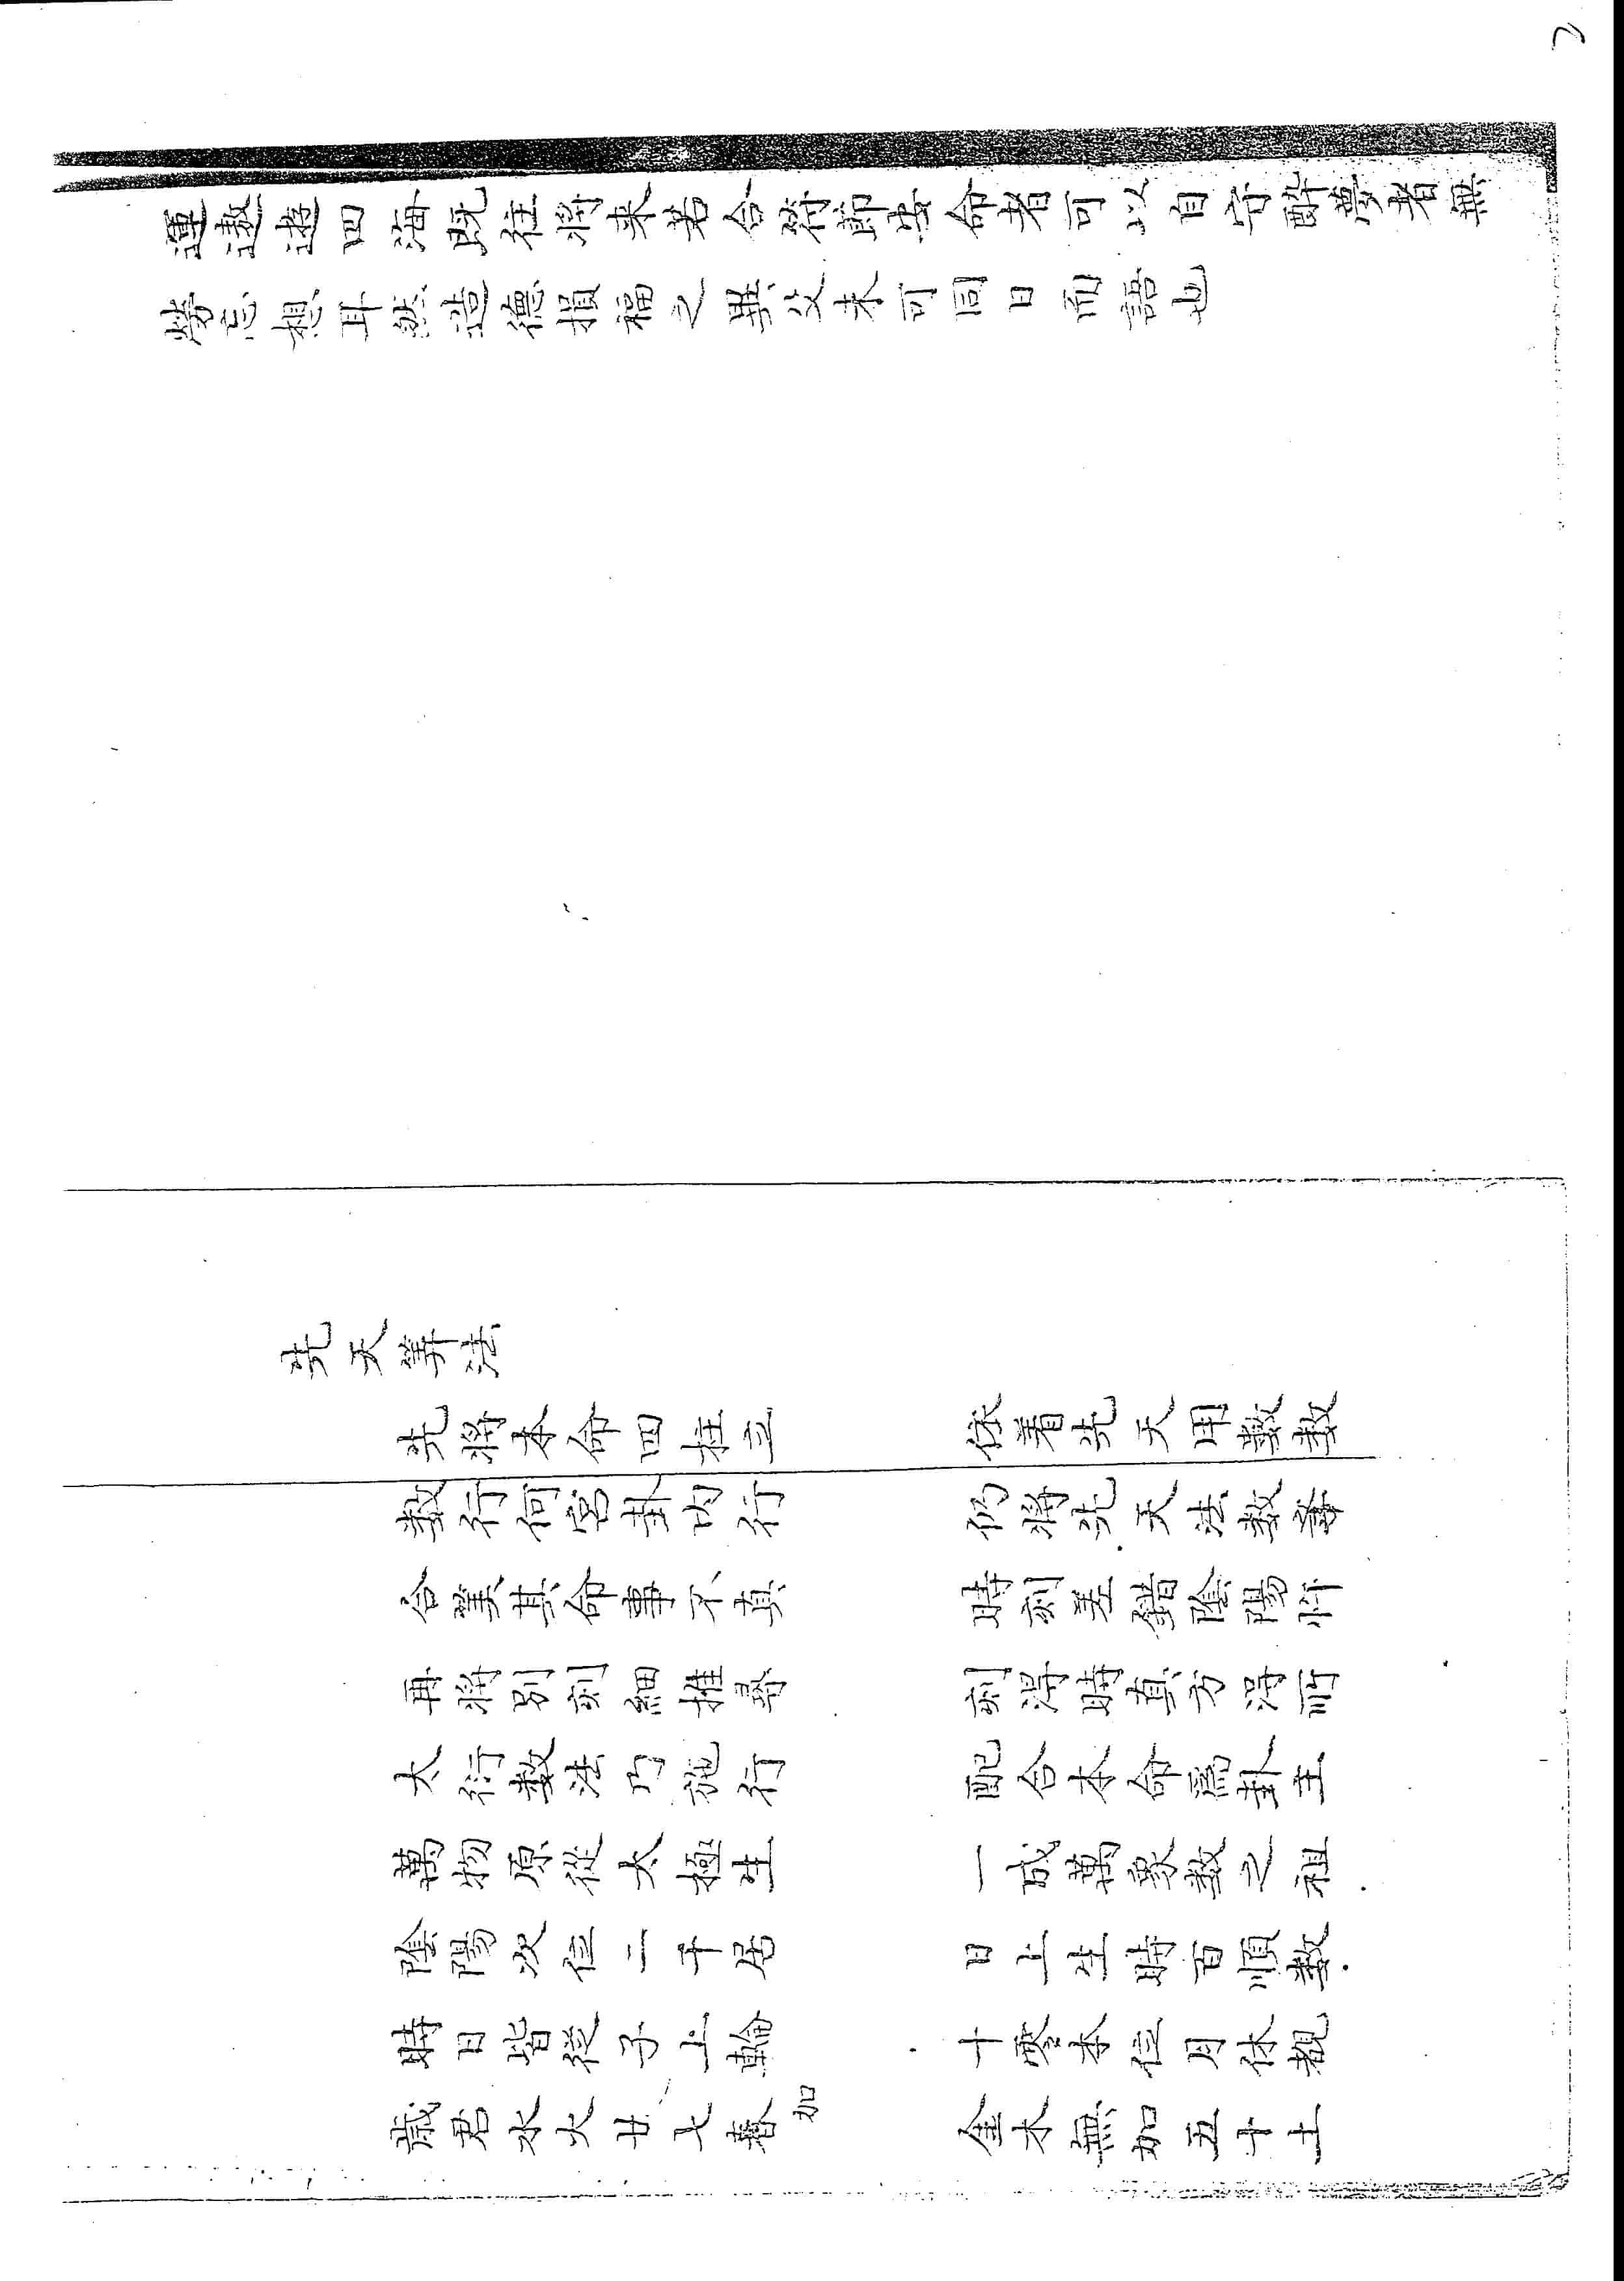 運遨遊四海既往將来若合符節安命者可以自守醉夢者無
勞忘想耳然造德損福之異又未可同日而語也
先天筭法
先將本命四柱立　依着先天用數数
数行何宮卦内行　仍將先天法数筭
合筭其命事不真　時刻差錯陰陽忤
再將别刻細推尋　刻得時真方得所
太衍數法乃施行　配合本命為卦主
萬物原從太極生　一成萬象数之祖
陰陽次位二千居　日上生時百順数
時日皆從子上輪　十零本位月休覩
歲君水火廿七　加　金木無加五十土